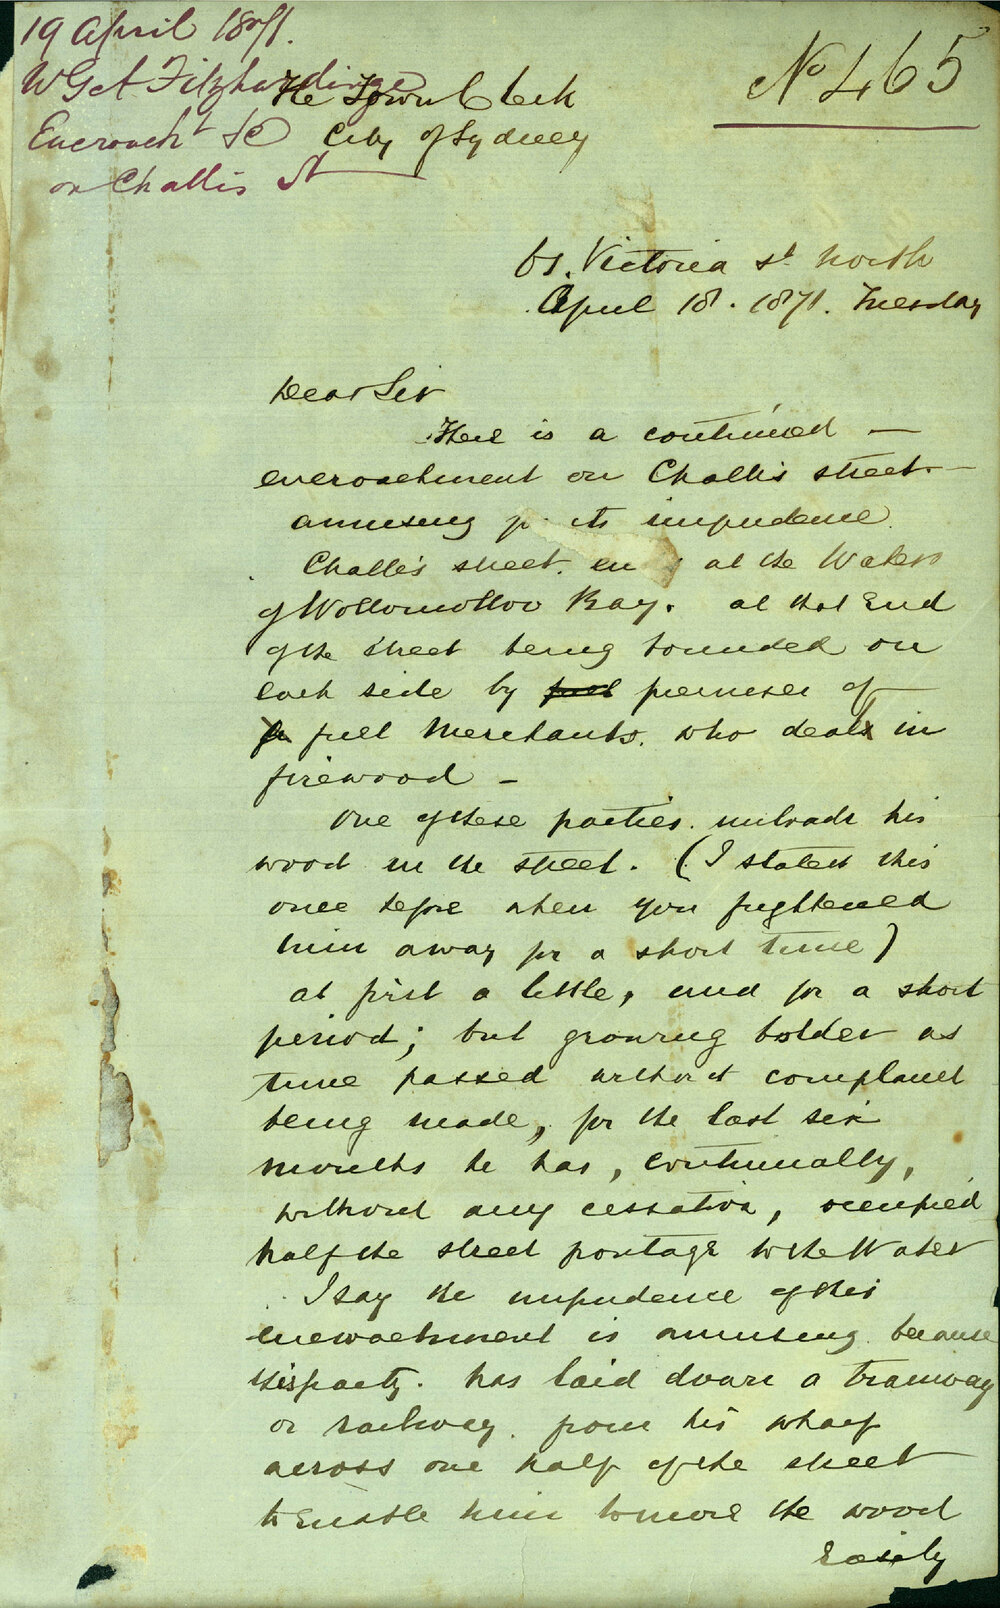 19 April 1871.
W G A Fitzhardinge
Encroacht &c
on Challis St
No 465
The Town Clerk
City of Sydney
61. Victoria St North
April 18. 1871. Tuesday
Dear Sir
There is a continued —
encroachment on Challis street —
amusing for its impudence.
Challis street. ends at the Waters
of Wolloomolloo Bay. at that End
of the street being bounded on
each side by fuel premises of
fuel Merchants. who deal in
firewood —
One of these parties. unloads his
wood in the street. (I stated this
once before when you frightened
him away for a short time)
at first a little, and for a short
period; but growing bolder as
time passed without complaint
being made, for the last six
months he has, continually,
without any cessation, occupied
half the street frontage to the Water
I say the impudence of this
encroachment is amusing because
this party. has laid down a tramway
or railway. from his wharf
across one half of the street
to Enable him to move the wood
Easily